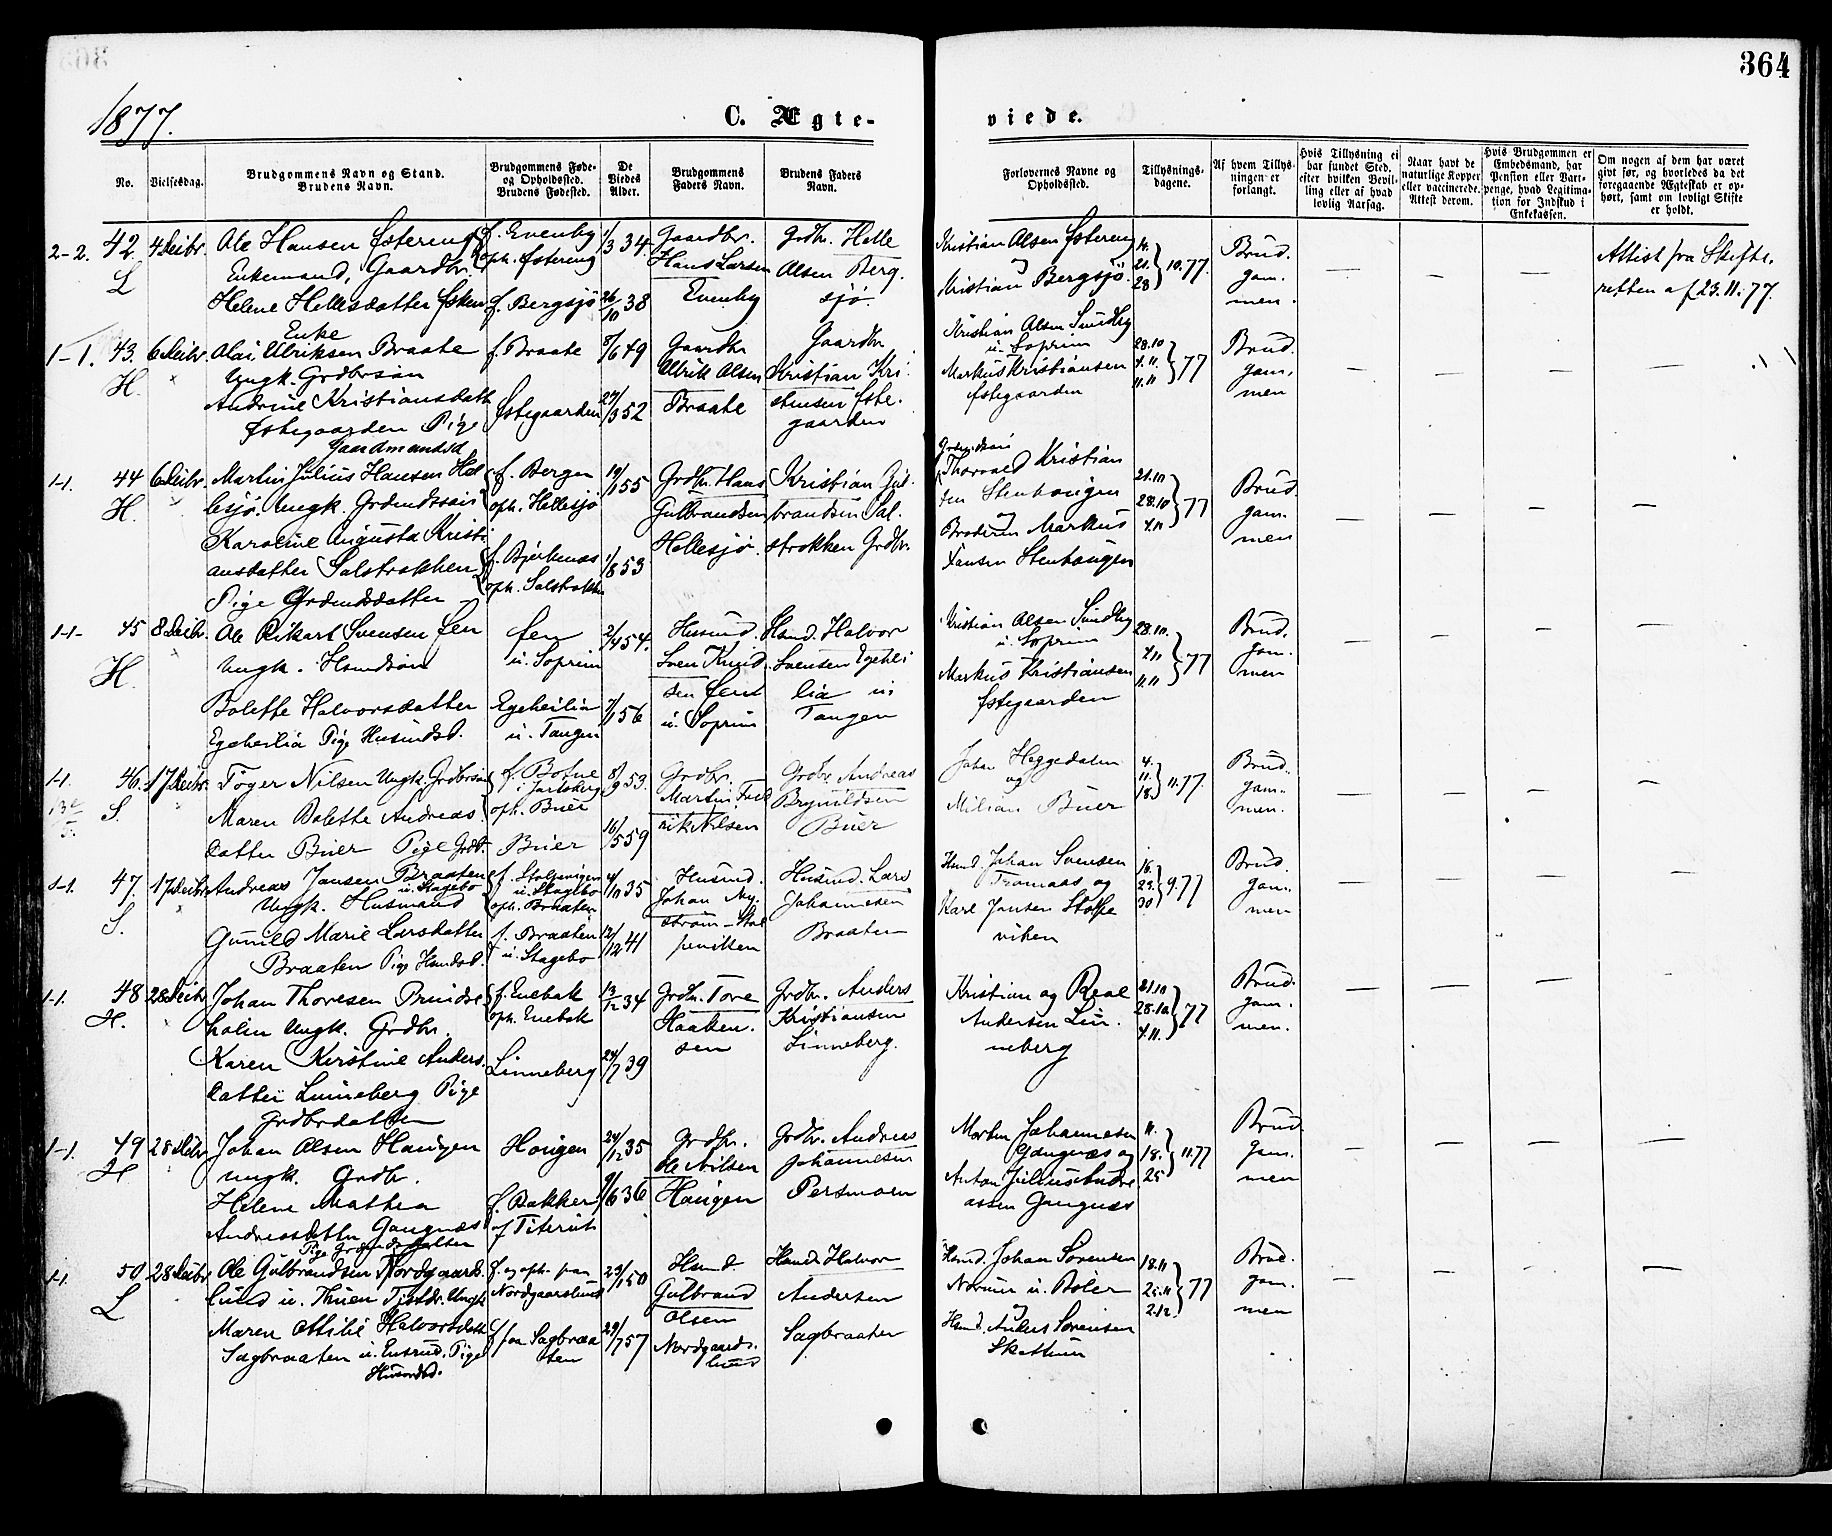 364
1877.
C. Ægte-
viede.
No.
Vielsesdag.
Brudgommens Navn og Stand.
Brudens Navn.
Brudgommens Føde-
og Opholdssted.
Brudens Fødested.
De
Viedes
Alder.
Brudgommens
Faders Navn.
Brudens Faders
Navn.
Forlovernes Navne og
Opholdssted.
Tillysnings-
dagene.
Af hvem Tillys-
ningen er
forlangt.
Hvis Tillysning ei
har fundet Sted,
efter hvilken Bevil-
ling eller af hvad
lovlig Aarsag.
Naar havt de
naturlige Kopper
eller vaccinerede.
Attest derom.
Hvis Brudgommen er
Embedsmand, har
Pension eller Vart-
penge, hvad Legitima-
tion for Indskud i
Enkekassen.
Om nogen af dem har været
givt før, og hvorledes da det
foregaaende Ægteskab er op-
hørt, samt om lovligt Skifte
er holdt.
2-2. 42 4 Decbr.
L
Ole Hansen Østereng
Enkemand, Gaardbr.
Helene Hellesdatter
Enke
f. Evenby
oph. Østereng
f. Bergsjö
1/3 34
26/10 38
Gaardbr.
Hans Larsen
Evenby
Grdbr. Helle
Olsen Berg-
sjö.
Kristian Olsen Østereng
og
Kristian Bergsjö.
14.
21.
28
10.77.
Brud-
gom-
men.
Attest fra Skifte-
retten af 23.11.77.
1-1. 43. 6 Decbr.
H.
Olai Ulriksen Braate
Ungk. Grdbrsøn
Andrine Kristiansdatt.
Østegaarden Pige
Gaardmandsd.
f. Braate
Østegaarden
8/6 49
27/3 52
Gaardbr
Ulrik Olsen
Braate
Gaardbr
Kristian Kri-
stensen Øste-
gaarden
Kristian Olsen Sundby
u. Soprim
Markus Kristiansen
Østegaarden
28.10
4.11.
11.11
77
Brud-
gom-
men
1-1. 44 6 Decbr.
H.
Martin Julius Hansen Hel-
lesjö. Ungk. Grdmdssøn
Karoline Augusta Kristi-
ansdatter Solstrokken
Pige Grdmdsdatter
f. Bergen
oph. Hellesjö
f. Bjerkenæs
oph. Solstrokken
19/1 55
1/8 53
Grdbr. Hans
Gulbrandsen
Hellesjö
Kristian Gul-
brandsen Sol-
strokken Grdbr.
Thorvald Kristian-
sen Stenhaugen
og
Broderen Markus
Jansen Stenhaugen
21.10
28.10
4.11
77
Brud-
gom-
men
1-1- 45 8 Decbr.
H.
Ole Rikart Svensen Fen
Ungk. Hsmdsøn
Bolette Halvorsdatter
Egeheilia Pige Husmdsd.
Fen
u. Soprim
Egeheilia
u. Tangen
2/4 54.
7/1 56
Husmd.
Sven Knud-
sen Fen
u. Soprim
Hsmd. Halvor
Svensen Egehei-
lia u.
Tangen
Kristian Olsen Sundby
u. Soprim
Markus Kristiansen
Østegaarden
28.10.
4.11
11.11
77
Brud-
gom-
men
1-1. 46. 17 Decbr.
S.
Töger Nilsen Ungk. Grdbrsøn
Maren Bolette Andreas-
datter Buer Pige Grdb.
f. Botne
i Jarlsberg
oph. Buer
Buer
8/9 53.
16/5 59
Grdbr.
Martin Fred-
rik Nilsen
Grdbr. Andreas
Brynildsen
Buer
Johan Heggedalen
og
Milian Buer
4.
11.
18.
11.77.
Brud-
gom-
men.
1-1. 47. 17 Decbr.
S.
Andreas Jansen Braaten
u. Stagebo
Ungk. Husmand
Gunild Marie Larsdatter
Braaten Pige Hsmdsd.
f. Stolpevigen
u. Stagebo
oph. Braaten
f. Braaten
u. Stagebo
4/10 35
12/12 41
Husmd.
Johan Ny-
ström
Husmd. Lars
Johannesen
Braaten
Hsmd. Johan Svensen
Tromaas og
Karl Jansen Stolpe-
viken
16.
23.
30
9.77
Brud-
gom-
men
1-1. 48 28 Decbr
H.
Johan Thoresen Brunds-
holm Ungk. Grdbr.
Karen Kirstine Anders-
datter Linneberg Pige
Grdbrdatter
f. Enebak
oph. Enebak
Linneberg
13/12 34
24/7 39
Grdbr. Tore
Haaken-
sen
Grdbr. Anders
Kristiansen
Linneberg.
Kristian og Roal
Andersen Lin-
neberg
21.10
28.10.
4.11.
77
Brud-
gom-
men.
1-1. 49 28 Decbr
H
Johan Olsen Haugen
Ungk. Grdbr.
Helene Mathea
Andreasdatter Gangnæs
Pige Grdmdsdatter
Haugen
f. Bakken
af Titerud
24/12 35
9/6 36
Grdbr.
Ole Nilsen
Haugen
Grdbr. Andreas
Johannesen
Persmoen
Morten Johannesen
Gangnæs og
Anton Julius Andre-
assen Gangnæs
11.
18.
25
11.77
Brud-
gom-
men
1-1. 50 28 Decbr.
L
Ole Gulbrandsen Nordgaards-
lund u. Thuen Tjstdr. Ungk
Maren Ottilie Halvorsdatt.
Sagbraaten u. Enerud. Pige
Husmdsd.
f. og oph. paa
Nordgaardslund
f. paa Sagbraa-
ten
29/1 50
29/7 57
Hsmd.
Gulbrand
Olsen
Nordgaards-
lund
Hsmd. Halvor
Andersen
Sagbraaten
Hsmd. Johan Sørensen
Normen u. Boler
og
Hsmd. Anders Sørensen
Skattum
18.11
25.11
2.12.
77
Brud-
gom-
men